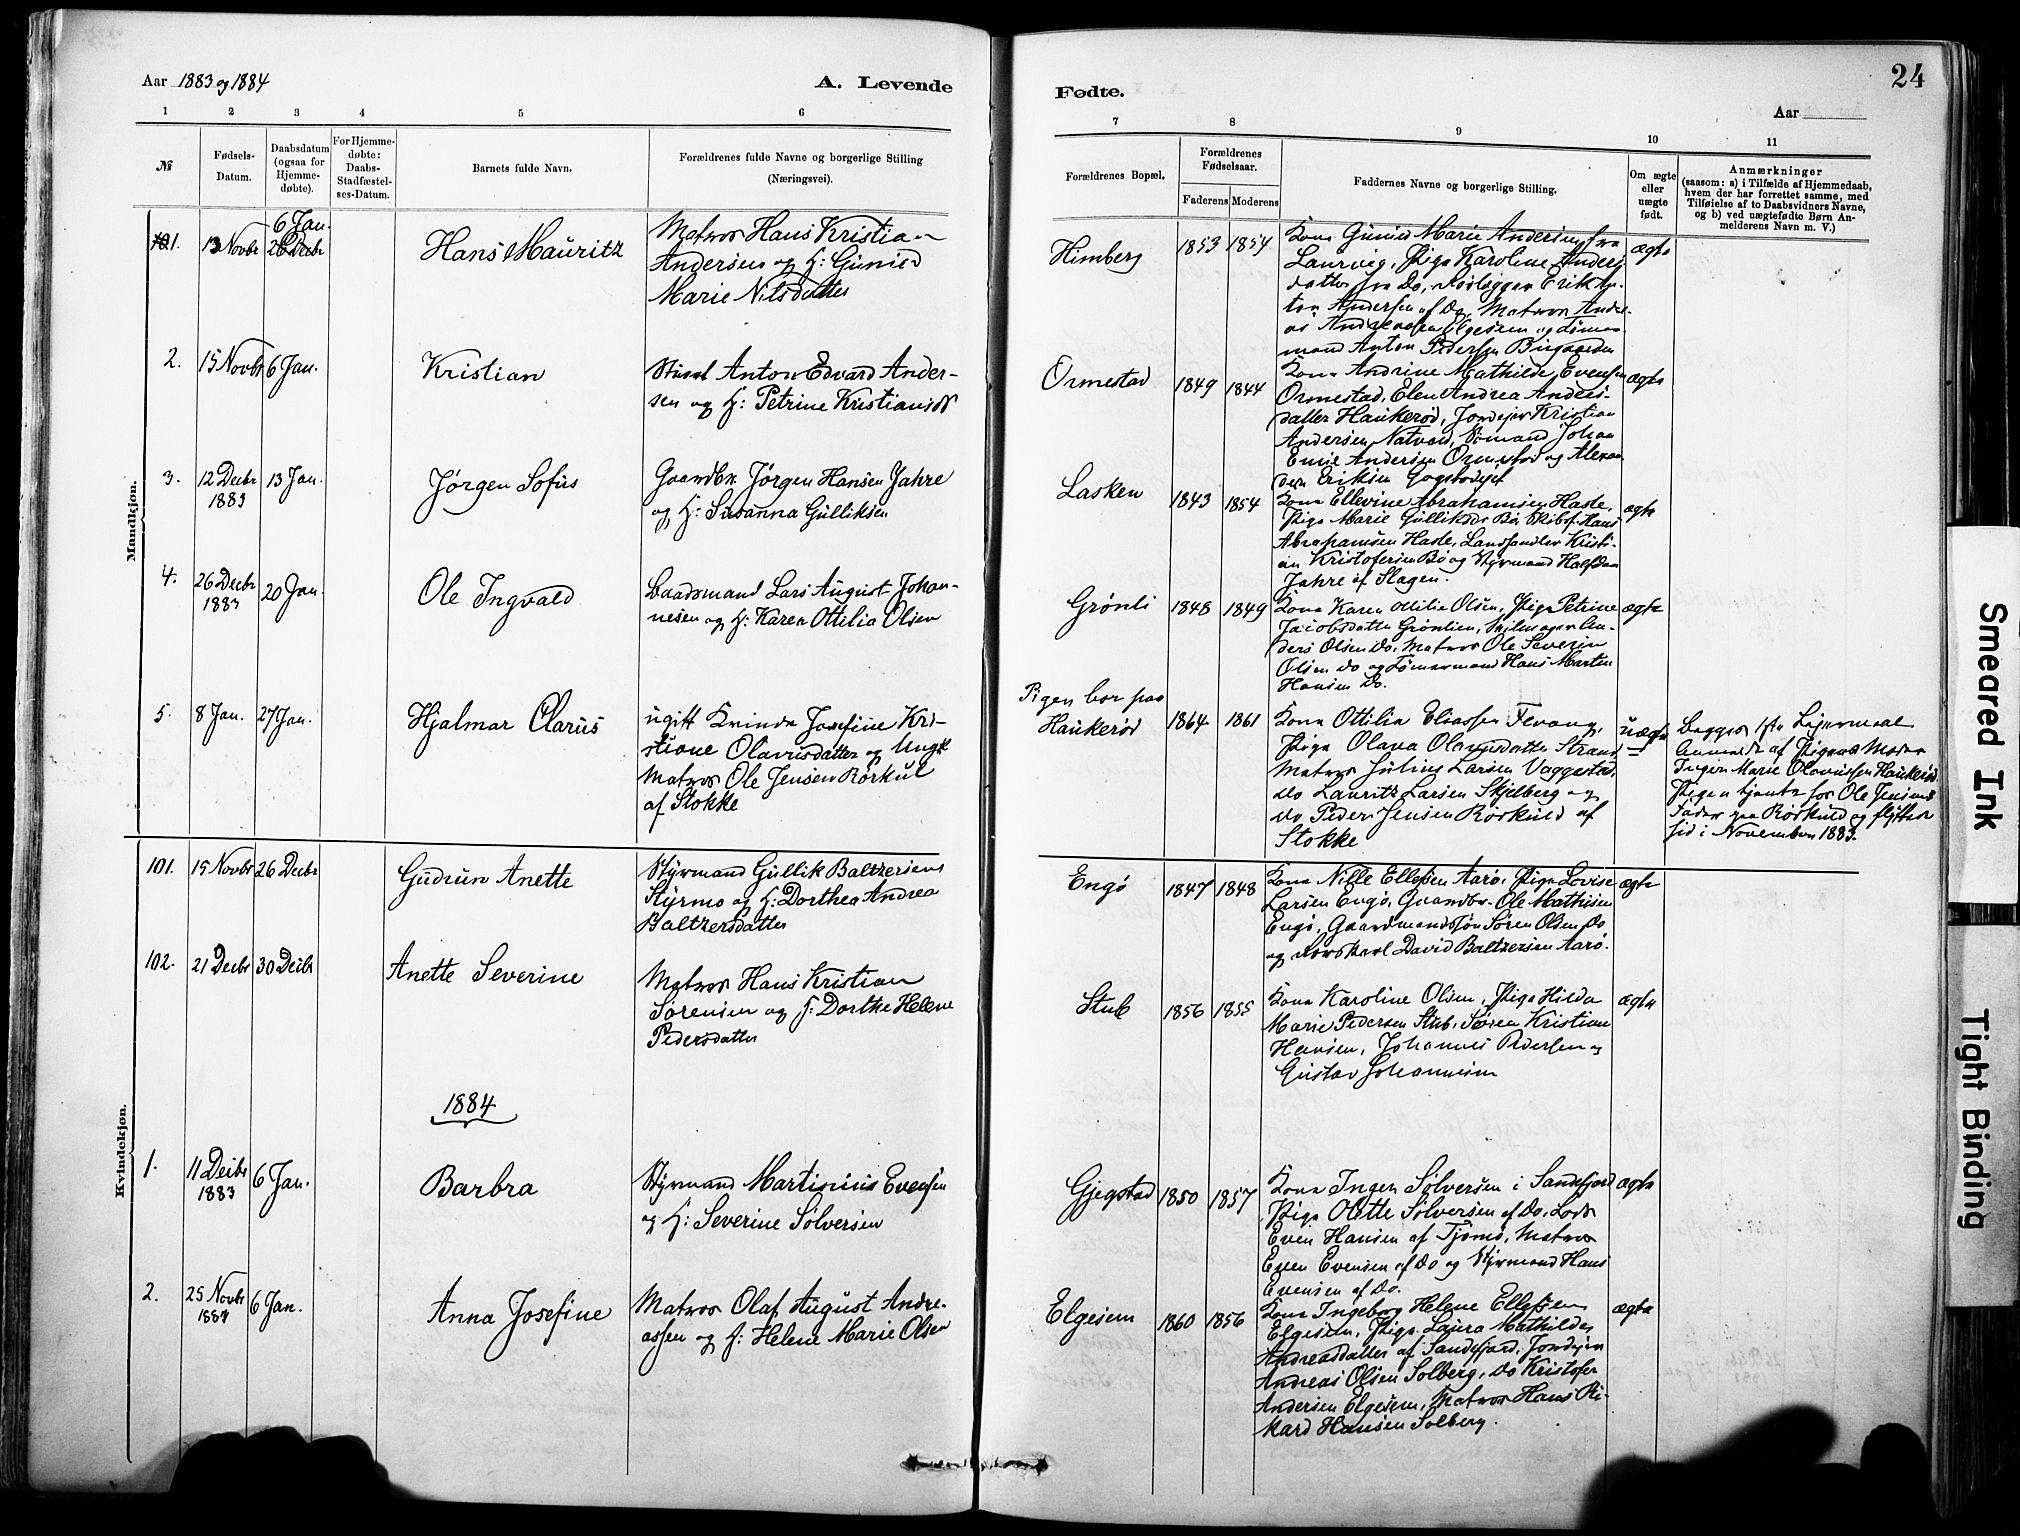 Aar 1883 og 1884
A. Levende
Fødte.
24
Aar
1 2 3 4 5 6
7 8 9 10 11
№
Fødsels-
Datum.
Daabsdatum
(ogsaa for
Hjemme-
døbte).
For Hjemme-
døbte:
Daabs-
Stadfæstel-
ses-Datum.
Barnets fulde Navn.
Forældrenes fulde Navne og borgerlige Stilling
(Næringsvei).
Forældrenes Bopæl.
Forældrenes
Fødselsaar.
Faderens Moderens
Faddernes Navne og borgerlige Stilling.
Om ægte
eller
uægte
født.
Anmærkninger
(saasom: a) i Tilfælde af Hjemmedaab,
hvem der har forrettet samme, med
Tilføielse af to Daabsvidners Navne,
og b) ved uægtefødte Børn An-
melderens Navn m. V.)
Mandkjøn.
1. 13 Novbr 6 Jan.
26 Decbr
Hans Mauritz
Matros Hans Kristian
Andersen og H: Gunild
Marie Nilsdatter
Himberg 1853 1854
Kona Gunild Marie Andersen fra
Laurvig, Pige Karoline Anders-
datter fra Do, Rørlægger Erik An-
ton Andersen af Do, Matros Andre-
as Andreasen Elgesem og Tømmer-
mand Anton Pedersen
ægte
2. 15 Novbr 6 Jan.
Kristian
Anton Edvard Ander-
sen og H: Petrine Kristiansdr
Ormestad 1849 1844
Kona Andrine Mathilde Evensen
Ormestad, Elen Andrea Anders-
datter Haukerød, Jordejer Kristian
Andersen Natvald, Sømand Johan
Emil Andersen Ormestad og Alexan-
der Eriksen
ægte
3. 12 Decbr
1883
13 Jan.
Jørgen Sofus
Gaardbr. Jørgen Hansen Jahre
og H: Susanna Gulliksen
Lasken 1843 1854
Kona Ellevine Abrahamsen Hasle,
Pige Marie Gulliksdr Bø, Skibsf. Hans
Abrahamsen Hasle, Landhandler Kristi-
an Kristofersen Bø og Styrmand Halfdan
Jahre af Slagen.
ægte
4. 26 Decbr
1883
20 Jan.
Ole Ingvald
Baadsmand Lars August Johan-
nesen og H: Karen Ottilia Olsen
Grønli 1848 1849
Kona Karen Ottilia Olsen, Pige Petrine
Jacobsdatter Grønlien, Seilmager An-
ders Olsen Do, Matros Ole Severin
Olsen Do og Tømmermand Hans Martin
Hansen Do.
ægte
5. 8 Jan. 27 Jan.
Hjalmar Olarus
ugift Kvinde Josefine Kri-
stiane Olavusdatter og Ungk
Matros Ole Jensen Rørkul
af Stokke
Pigen bor paa
Haukerød
1864 1861
Kona Ottilia Eliassen Fevang,
Pige Olava Olavusdatter Strand
Matros Julius Larsen Vaggestad,
Do Lauritz Larsen Skjelberg og
Do Peder Jensen Rørkuld af
Stokke
uægte
Begges 1ste Leiermaal
Anmeldt af Pigens Moder
Inger Marie Olavussen Haukerød.
Pigen tjente for Ole Jensens
Fader paa Rørkuld og flyttede
hid i November 1883.
Kvindekjøn.
101. 15 Novbr 26 Decbr
Gudrun Anette
Styrmand Gullik Baltzersen
Styrmo og H: Dorthea Andrea
Baltzersdatter
Engø 1847 1848
Kona Nille Ellefsen Aarø, Pige Lovise
Larsen Engø, Gaardbr. Ole Mathisen
Engø, Gaardmandssøn Søren Olsen Do
og Rorskarl David Baltzersen Aarø.
ægte
102. 21 Decbr 30 Decbr
Anette Severine
Matros Hans Kristian
Sørensen og H: Dorthe Helene
Pedersdatter
Stub 1856 1855
Kona Karoline Olsen, Pige Hilda
Marie Pedersen Stub, Søren Kristian
Hansen, Johannes Pedersen og
Gustav Johannesen
ægte
1884
1. 11 Decbr
1883
6 Jan.
Barbra
Styrmand Martinius Evensen
og H: Severine Sølversen
Gjegstad 1850 1857
Kona Inger Sølversen i Sandefjord
Pige Olette Sølversen af Do, Lods
Even Hansen af Tjømø, Matros
Even Evensen af Do og Styrmand Hans
Evensen af Do.
ægte
2. 25 Novbr
1883
6 Jan.
Anna Josefine
Matros Olaf August Andre-
assen og H: Helene Marie Olsen
Elgesem 1860 1856
Kona Ingeborg Helene Ellefsen
Elgesem, Pige Laura Mathilde
Andreasdatter af Sandefjord, Jordejer
Andreas Olsen Solberg, Do Kristofer
Andersen Elgesem, Matros Hans Ri-
kard Hansen Solberg.
ægte
Smeared Ink
Tight Binding